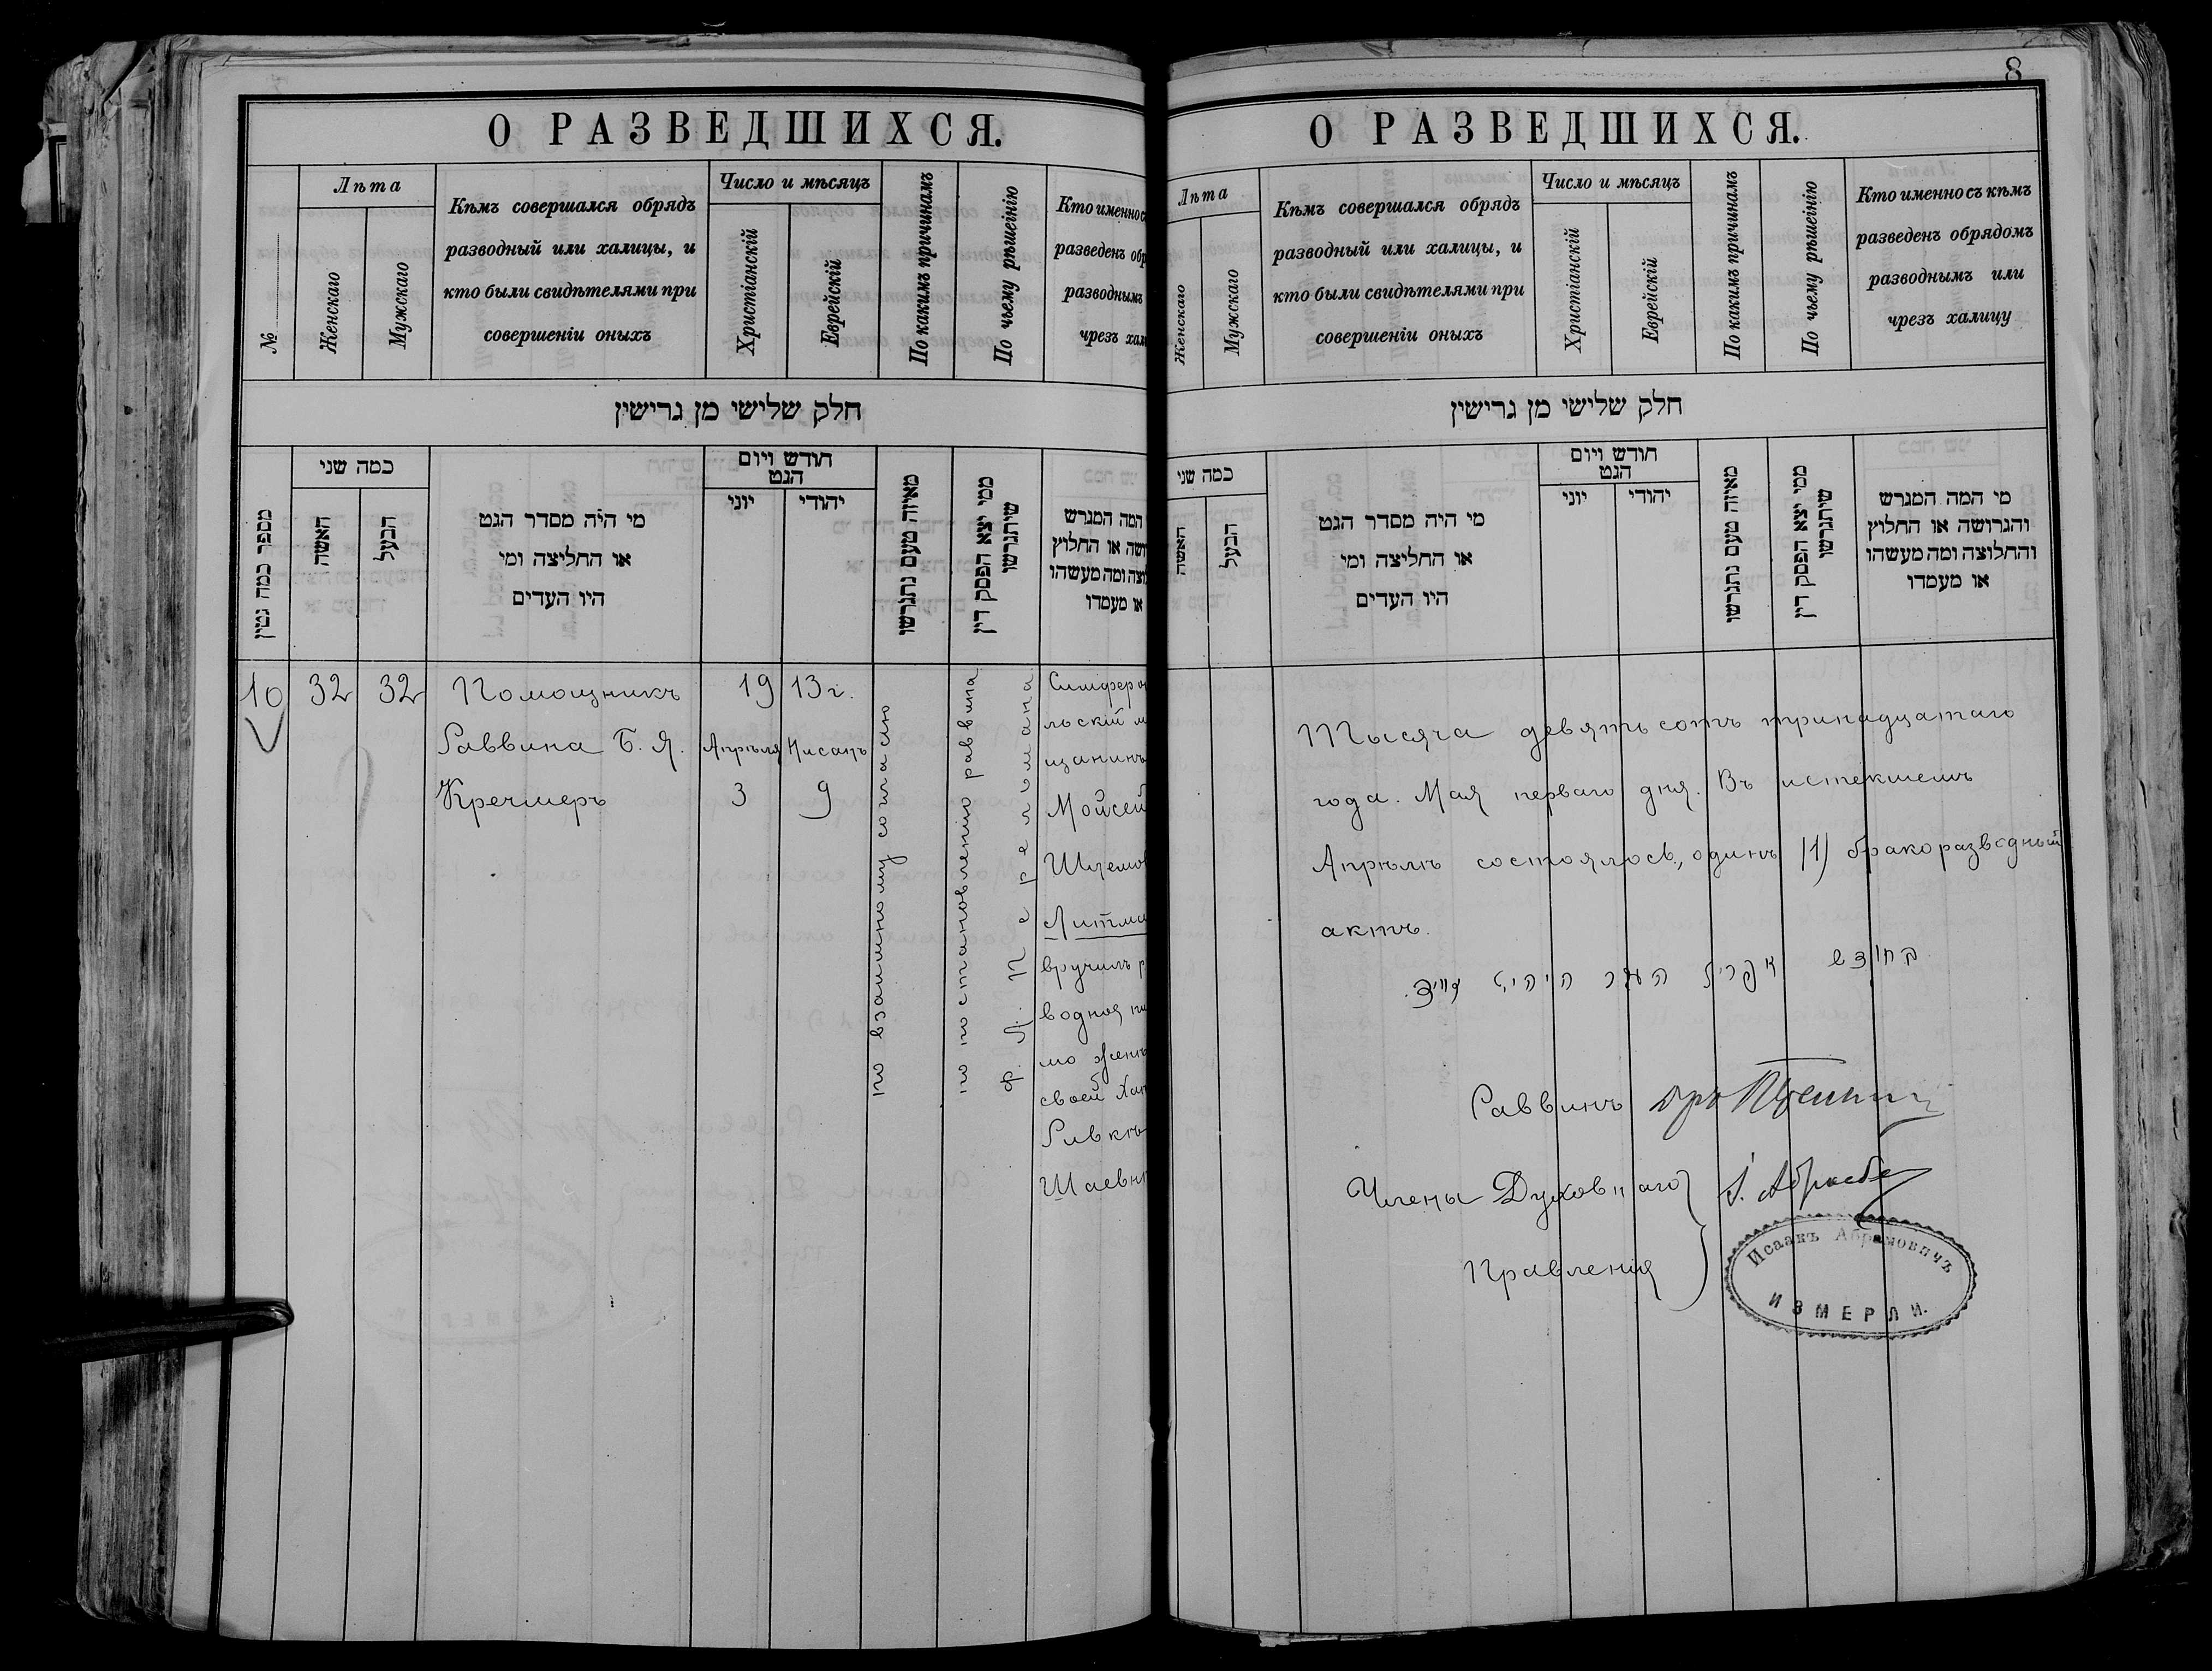 О РАЗВЕДШИХСЯ.
№
Лѣта
Женскаго
Мужскаго
Кѣмъ совершался обрядъ
разводный или халицы, и
кто были свидѣтелями при
совершеніи оныхъ
Число и мѣсяцъ
Христіанскій
Еврейскій
По какимъ причинамъ
По чьему рѣшеінію
Кто именно
разведенъ
разводнымъ
чрезъ
חלק שלישי מן גרישין
מספר כמה גטין
כמה שני
האשה
הבעל
מי היה מסדר הגט
או החליצה ומי
היו העדים
חודש ויום
הגט
יוני
יהודי
מאיזה טעם נתגרשו
ממי יצא הפסק דין
שיתגרשו
המה המגרש
או החלוץ
ומה מעשהו
או מעמדו
10
32
32
Помощникъ
Раввина Б. Я.
Кречмеръ
19 13 г.
Апрѣля Нисанъ
3 9
по взаимному согласію
по постановленію раввина
Ф. Л. Перельмана
Симферо
льскій м
щанинъ
Мойсей
Шлемов
Литма
вручилъ р
водное пи
мо женѣ
своей Хан
Ривкѣ
Шаевн
8
О РАЗВЕДШИХСЯ.
Лѣта
Женскаго
Мужскаго
Кѣмъ совершался обрядъ
разводный или халицы, и
кто были свидѣтелями при
совершеніи оныхъ
Число и мѣсяцъ
Христіанскій
Еврейскій
По какимъ причинамъ
По чьему рѣшеінію
Кто именно съ кѣмъ
разведенъ обрядомъ
разводнымъ или
чрезъ халицу
חלק שלישי מן גרישין
כמה שני
האשה
הבעל
מי היה מסדר הגט
או החליצה ומי
היו העדים
חודש ויום
הגט
יוני
יהודי
מאיזה טעם נתגרשו
ממי יצא הפסק דין
שיתגרשו
מי המה המגרש
והגרושה או החלוץ
והחלוצה ומה מעשהו
או מעמדו
Тысяча девятьсотъ тринадцатаго
года. Мая перваго дня. Въ истекшемъ
Апрѣлѣ состоялось, одинъ (1) бракоразводный
актъ.
בחודש אפריל
Раввинъ
Члены Духовнаго
Правленія
Исаакъ Абрамовичъ
ИЗМЕРЛИ.